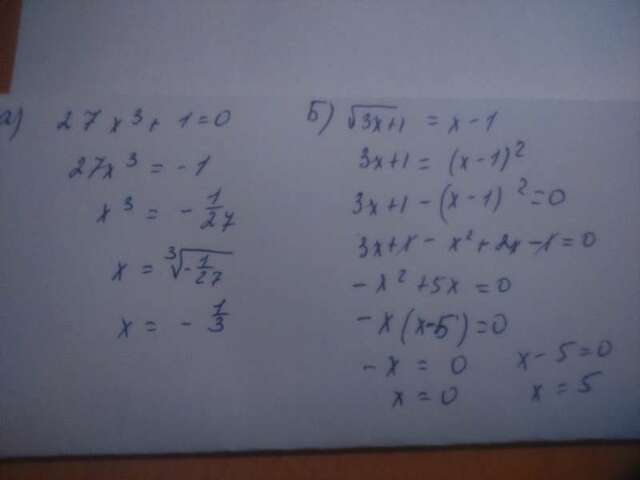 а) 27x³ + 1 = 0
27x³ = -1
x³ = -1/27
x = ∛(-1/27)
x = -1/3
Б) √(3x+1) = x-1
3x+1 = (x-1)²
3x+1-(x-1)²=0
3x+1-x²+2x-1=0
-x²+5x=0
-x(x-5)=0
-x = 0 x-5=0
x=0 x=5